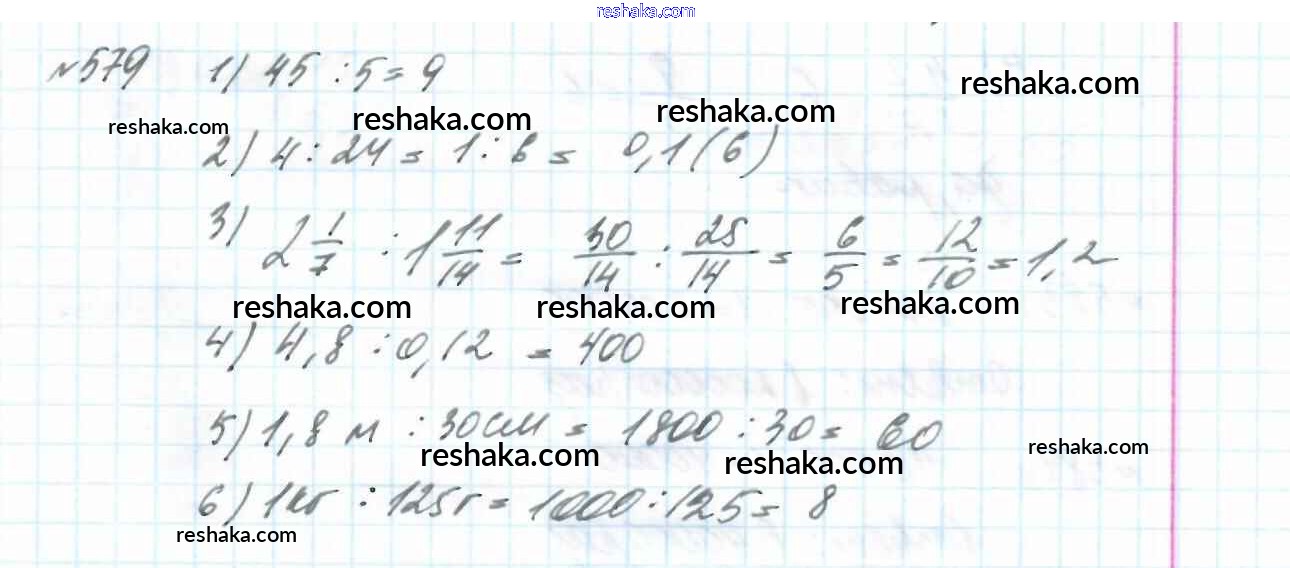 reshaka.com
№579 1) 45 : 5 = 9
reshaka.com
reshaka.com reshaka.com reshaka.com
2) 4 : 24 = 1 : 6 = 0,1(6)
3) 2 1/7 : 1 11/14 = 30/14 : 25/14 = 6/5 = 12/10 = 1,2
reshaka.com reshaka.com reshaka.com
4) 4,8 : 0,12 = 400
5) 1,8 м : 30см = 1800 : 30 = 60
reshaka.com reshaka.com reshaka.com
6) 1кг : 125г = 1000 : 125 = 8
reshaka.com